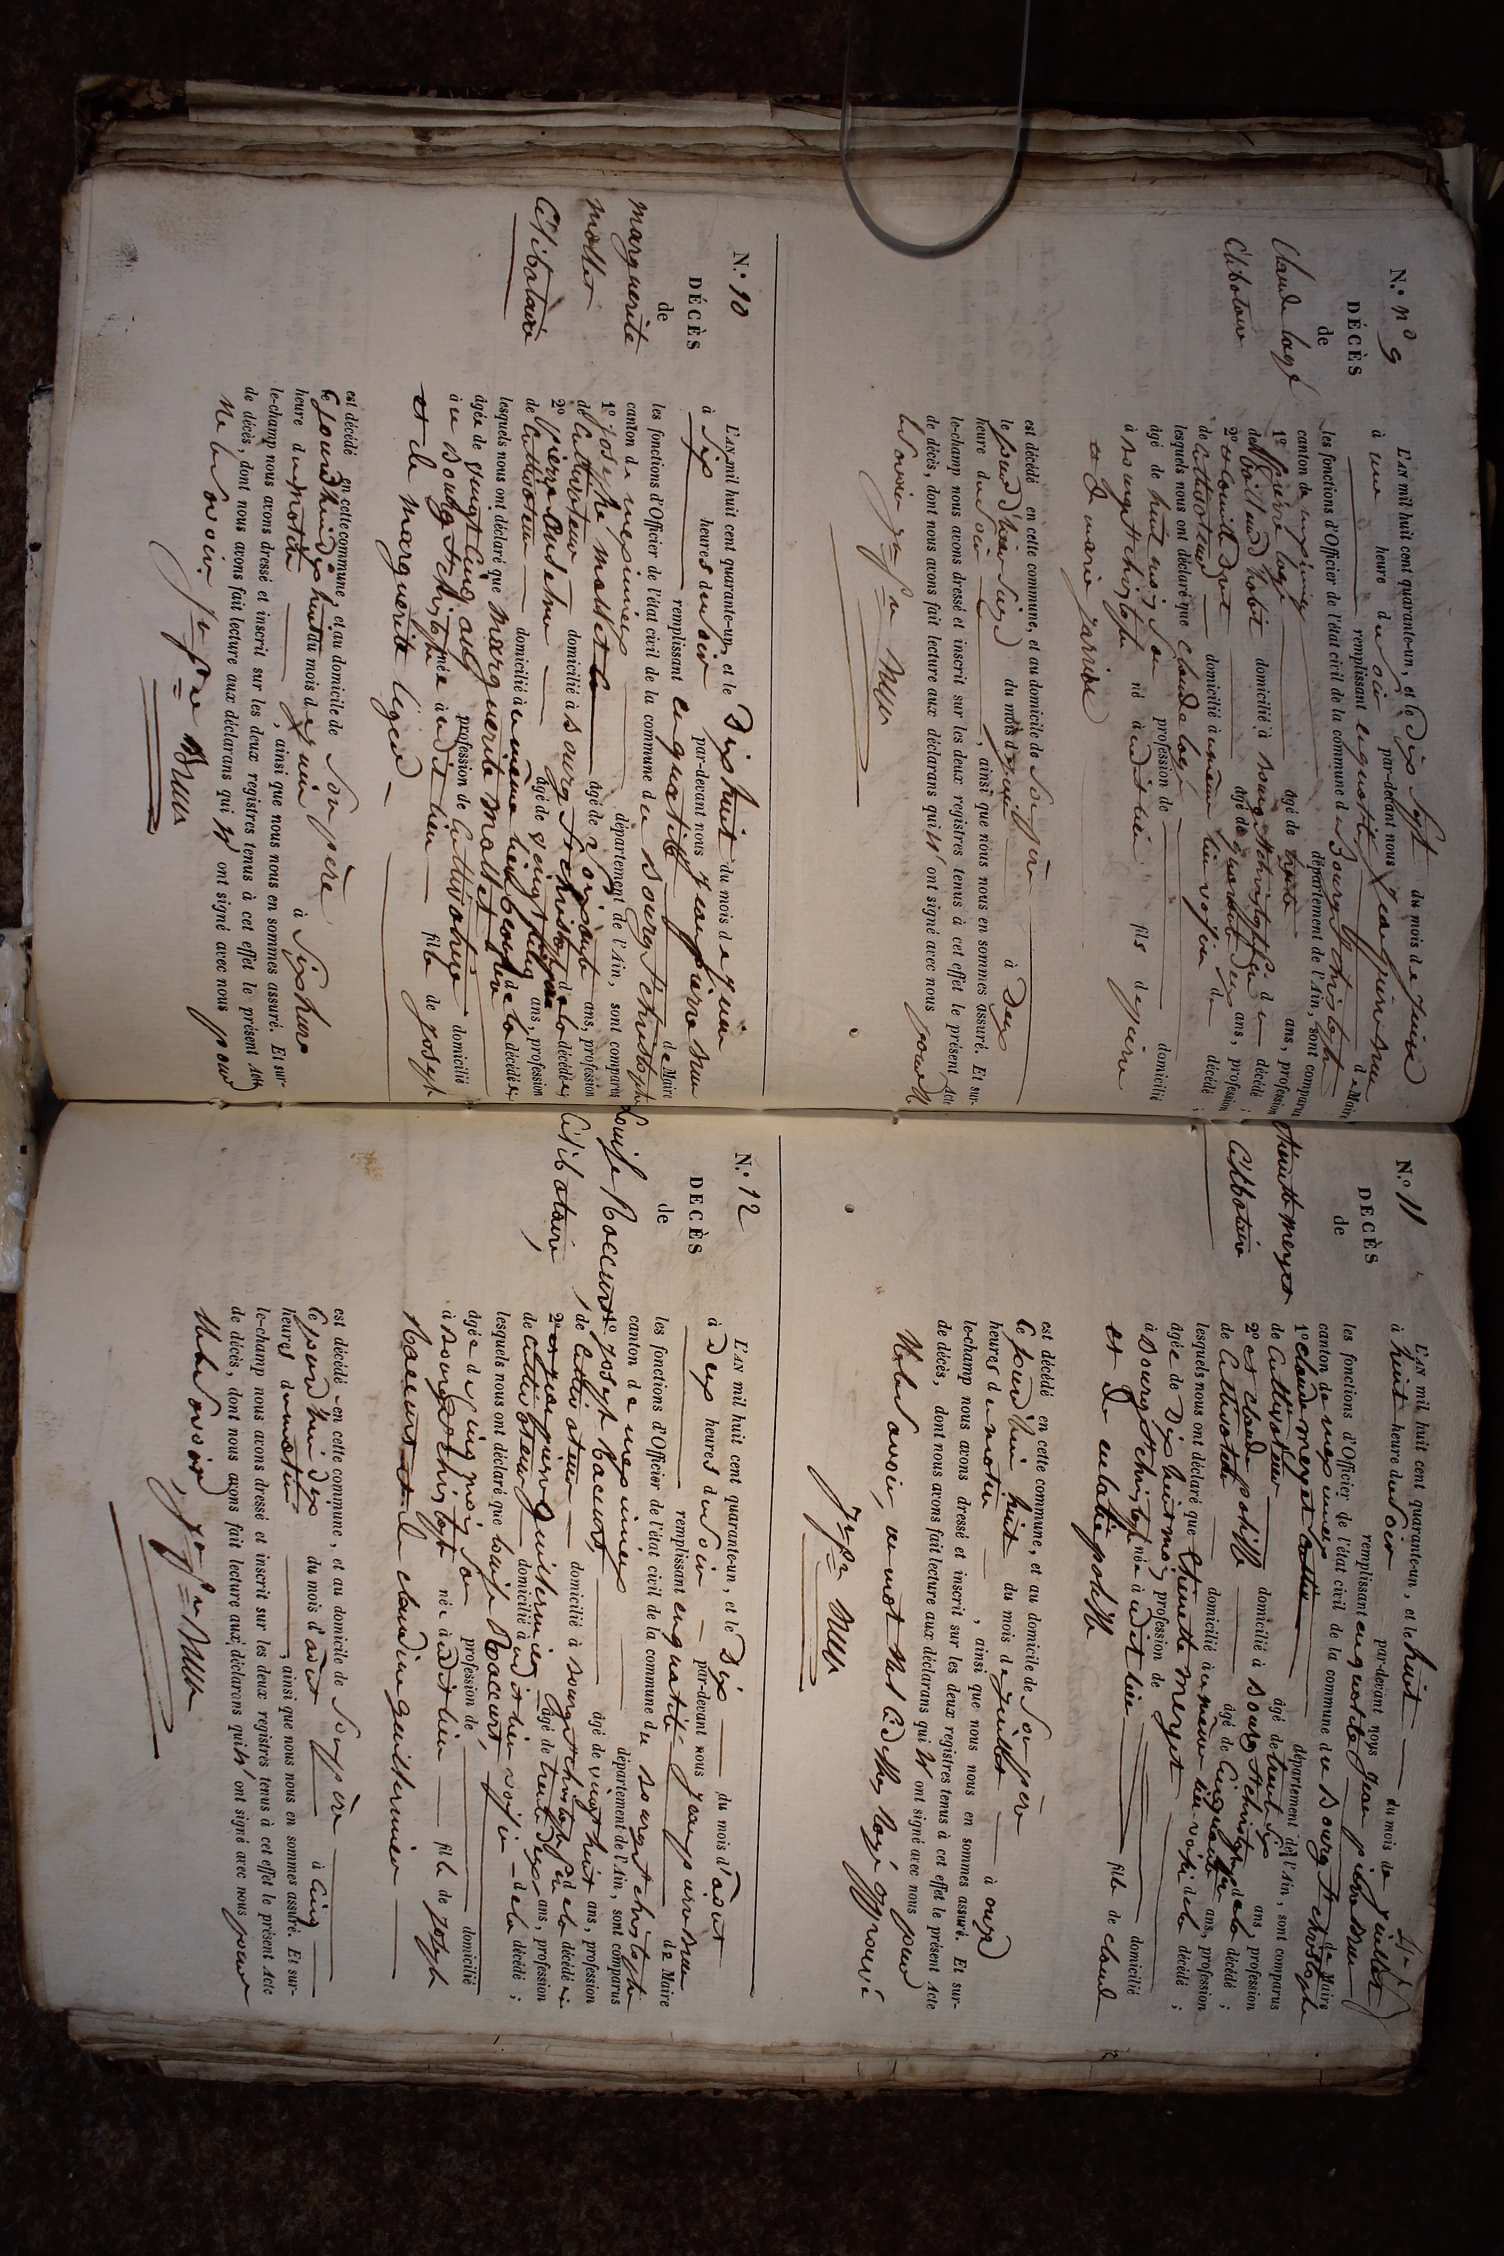 N.° n° 9
DÉCÈS
de
Claude logé
Célibataire
L'AN mil huit cent quarante-un, et le Dix Sept du mois de juin
à une heure du soir par-devant nous jean pierre
remplissant en qualité de Maire
les fonctions d'Officier de l'état civil de la commune de Bourg St christophe
canton de meximieux département de l'Ain, sont comparus
1.° pierre logé âgé de trente ans, profession
de domicilié à bourg St christophe du décédé ;
2.° et âgé de quarante deux ans, profession
de cultivateur domicilié à même lieu voisin du décédé ;
lesquels nous ont déclaré que claude logé
âgé de huit mois profession de domicilié
à bourg St christophe né à dit lieu fils de pierre
et de marie
est décédé en cette commune, et au domicile de Son père à Deux
le jour d'hier Seize du mois de juin
heure du soir, ainsi que nous nous en sommes assuré. Et sur-
le-champ nous avons dressé et inscrit sur les deux registres tenus à cet effet le présent Acte
de décès, dont nous avons fait lecture aux déclarans qui n' ont signé avec nous pour ne
le savoir
N.° 10
DÉCÈS
de
marguerite
mollet
Célibataire
L'AN mil huit cent quarante-un, et le Dix huit du mois de juin
à Six heures du soir par-devant nous jean pierre
remplissant en qualité de Maire
les fonctions d'Officier de l'état civil de la commune de Bourg St christophe
canton de meximieux département de l'Ain, sont comparus
1.° joseph mollet âgé de soixante ans, profession
de cultivateur domicilié à bourg St christophe de la décédée
2.° pierre âgé de vingt cinq ans, profession
de cultivateur domicilié à même lieu de la décédée
lesquels nous ont déclaré que marguerite mollet
âgée de vingt cinq ans profession de cultivatrice domicilié
à bourg St christophe née à dit lieu fille de joseph
et de marguerite léger
est décédé en cette commune, et au domicile de Son père à Six heure
le jourd'hui dix huit du mois de juin
heure du matin, ainsi que nous nous en sommes assuré. Et sur-
le-champ nous avons dressé et inscrit sur les deux registres tenus à cet effet le présent Acte
de décès, dont nous avons fait lecture aux déclarans qui n' ont signé avec nous pour
ne le savoir
N.° 11
DÉCÈS
de
Célibataire
L'AN mil huit cent quarante-un, et le huit du mois de juillet
à huit heure du soir par-devant nous jean pierre
remplissant en qualité de Maire
les fonctions d'Officier de l'état civil de la commune de Bourg St christophe
canton de meximieux département de l'Ain, sont comparus
1.° claude merget âgé de trente six ans, profession
de cultivateur domicilié à bourg St christophe de la décédé ;
2.° et claude âgé de cinquante ans, profession
de cultivateur domicilié à même lieu voisin de la décédé ;
lesquels nous ont déclaré que merget
âgée de Dix huit mois profession de domicilié
à Bourg St christophe née à dit lieu fille de claude
et de
est décédé en cette commune, et au domicile de Son père à onze
le jourd'hui huit du mois de juillet
heures du matin, ainsi que nous nous en sommes assuré. Et sur-
le-champ nous avons dressé et inscrit sur les deux registres tenus à cet effet le présent Acte
de décès, dont nous avons fait lecture aux déclarans qui n' ont signé avec nous pour
ne le savoir, un mot rayé approuvé
N.° 12
DÉCÈS
de
Louise Raccurt
Célibataire
L'AN mil huit cent quarante-un, et le Dix du mois d'août
à Deux heures du soir par-devant nous jean pierre
remplissant en qualité de Maire
les fonctions d'Officier de l'état civil de la commune de Bourg St christophe
canton de meximieux département de l'Ain, sont comparus
1.° joseph Raccurt âgé de vingt huit ans, profession
de cultivateur domicilié à bourg St christophe père de la décédé
2.° et âgé de trente deux ans, profession
de cultivateur domicilié à dit lieu voisin de la décédé ;
lesquels nous ont déclaré que louise Raccurt,
âgée de cinq mois profession de domicilié
à bourg St christophe née à dit lieu fille de joseph
Raccurt et de claudine
est décédé en cette commune, et au domicile de Son père à cinq
le jourd'hui dix du mois d'août
heures du matin, ainsi que nous nous en sommes assuré. Et sur-
le-champ nous avons dressé et inscrit sur les deux registres tenus à cet effet le présent Acte
de décès, dont nous avons fait lecture aux déclarans qui n' ont signé avec nous pour
ne le savoir